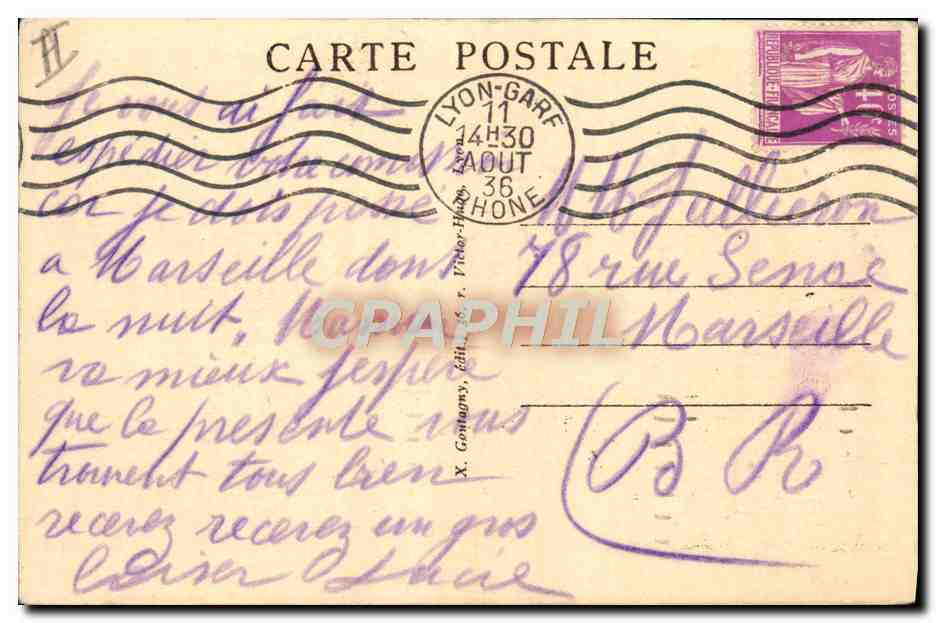 II
CARTE POSTALE
RÉPUBLIQUE FRANÇAISE
POSTES
40c
LYON-GARE
11
14H30
AOUT
36
RHONE
Je vous ai fait
expédier votre
car je dois passé
a Marseille dans
la nuit, Maman
va mieux J'espère
que la presente vous
trouvent tous bien
recevez recevez un gros
baiser Lucie
X. Goutagny, édit., 26, r. Victor-Hugo, Lyon
78 rue Senac
Marseille
B R
CPAPHIL